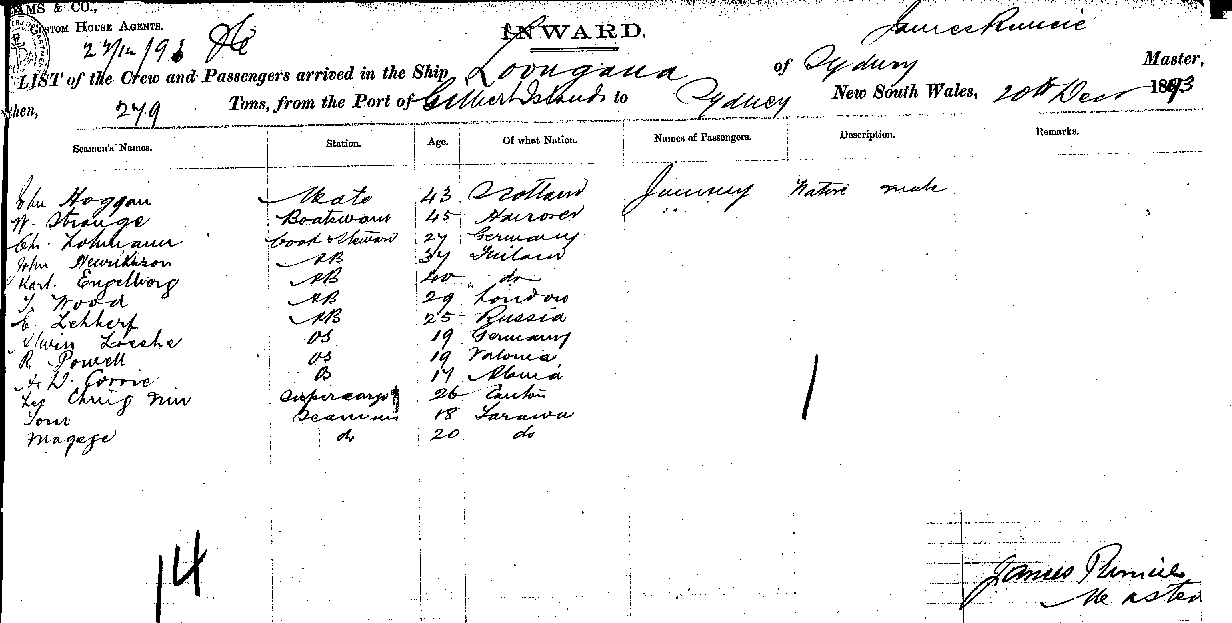 AMS & CO.,
CUSTOM HOUSE AGENTS.
INWARD.
James Runcie
27/12/93
LIST of the Crew and Passengers arrived in the Ship Loongana of Sydney Master,
then, 279 Tons, from the Port of Gilbert Islands to Sydney New South Wales, 20th Decr 1893
Seamen's Names. Station. Age. Of what Nation. Names of Passengers. Description. Remarks.
John Hoggan Mate 43 Scotland Jimmy Native male
W. Strange Boatswain 45 Hanover
Ch. Lohmann Cook & Steward 27 Germany
John Henrikson AB 37 Finland
Karl Engelborg AB 40 do
T. Wood AB 29 London
E. AB 25 Russia
OS 19 Germany
R Powell OS 19
D. Corrie 17
Supercargo 26 Canton
Tom Seaman 18 Tarawa
Magege do 20 do
1
14
James Runcie
Master